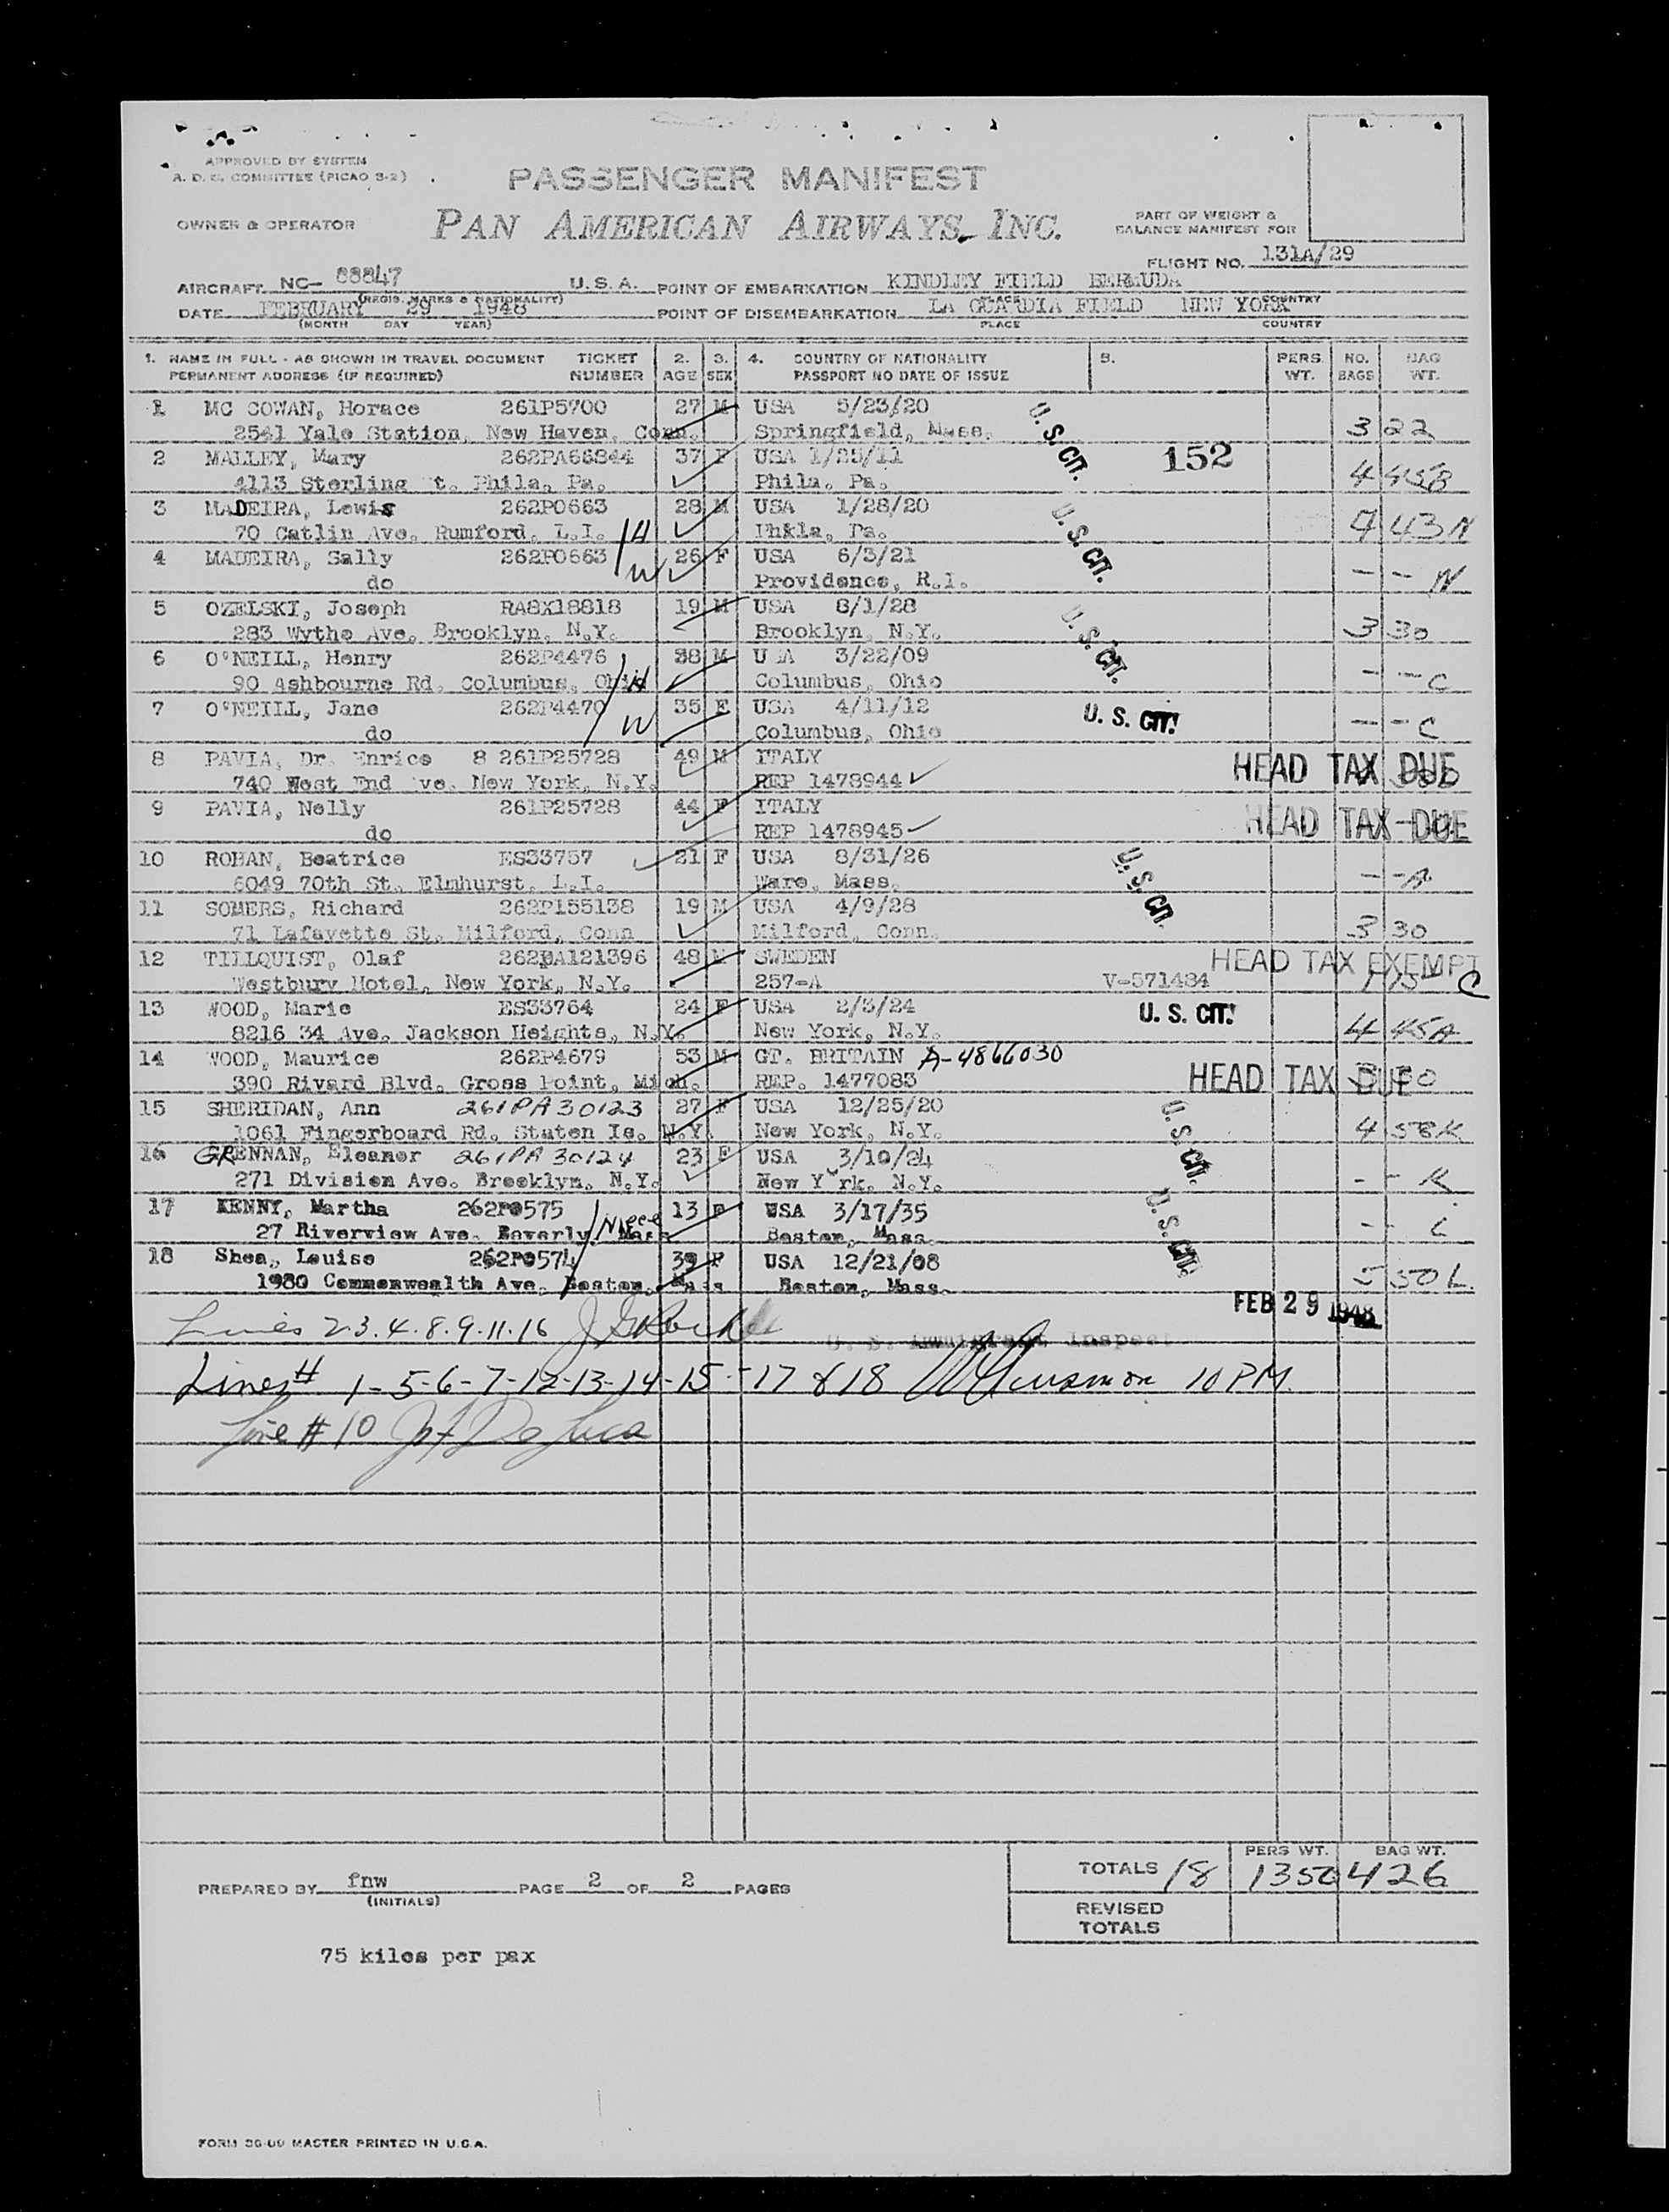 APPROVED BY SYSTEM
A. D. C. COMMITTEE (PICAO 3-2)
PASSENGER MANIFEST
OWNER & OPERATOR
PAN AMERICAN AIRWAYS, INC.
PART OF WEIGHT &
BALANCE MANIFEST FOR
FLIGHT NO. 131A/29
AIRCRAFT NC- 88847 U.S.A. POINT OF EMBARKATION KINDLEY FIELD BERMUDA
(REGIS. MARKS & NATIONALITY) PLACE COUNTRY
DATE FEBRUARY 29 1948 POINT OF DISEMBARKATION LA GUARDIA FIELD NEW YORK
(MONTH DAY YEAR) PLACE COUNTRY
1. NAME IN FULL - AS SHOWN IN TRAVEL DOCUMENT TICKET 2. 3. 4. COUNTRY OF NATIONALITY 5. PERS. NO. BAG
PERMANENT ADDRESS (IF REQUIRED) NUMBER AGE SEX PASSPORT NO DATE OF ISSUE WT. BAGS WT.
1 MC COWAN, Horace 261P5700 27 M USA 5/23/20 U.S. CIT.
2541 Yale Station, New Haven, Conn. Springfield, Mass. 3 22
2 MALLEY, Mary 262PA66844 37 F USA 1/25/11 152
4113 Sterling t. Phila, Pa. Phila. Pa. 4 45B
3 MADEIRA, Lewis 262P0663 28 M USA 1/28/20 U.S. CIT.
70 Catlin Ave. Rumford, L.I. H Phkla, Pa. 43N
4 MADEIRA, Sally 262P0663 26 F USA 6/3/21
do W Providence, R.I. - - N
5 OZELSKI, Joseph RA8X18818 19 M USA 8/1/28 U.S. CIT.
283 Wythe Ave. Brooklyn, N.Y. Brooklyn, N.Y. 3 30
6 O'NEILL, Henry 262P4476 38 M U A 3/22/09
90 Ashbourne Rd. Columbus, Ohio H Columbus, Ohio - - C
7 O'NEILL, Jane 262P4470 35 F USA 4/11/12 U. S. CIT.
do W Columbus, Ohio - - C
8 PAVIA, Dr. Enrico 8 261P25728 49 M ITALY HEAD TAX DUE
740 West End ve. New York, N.Y. REP 1478944
9 PAVIA, Nelly 261P25728 44 F ITALY HEAD TAX DUE
do REP 1478945
10 ROHAN, Beatrice ES33757 21 F USA 8/31/26 U.S. CIT.
6049 70th St. Elmhurst, L.I. Ware, Mass. - - A
11 SOMERS, Richard 262P155138 19 M USA 4/9/28
71 Lafayette St. Milford, Conn Milford, Conn. 3 30
12 TILLQUIST, Olaf 262PA121396 48 M SWEDEN HEAD TAX EXEMPT
Westbury Hotel, New York, N.Y. 257-A V-571484 1 15 C
13 WOOD, Marie ES33764 24 F USA 2/3/24 U. S. CIT.
8216 34 Ave. Jackson Heights, N.Y. New York, N.Y. 4 45A
14 WOOD, Maurice 262P4679 53 M GT. BRITAIN A-4866030
390 Rivard Blvd. Gross Point, Mich. REP. 1477083 HEAD TAX DUE
15 SHERIDAN, Ann 261PA30123 27 F USA 12/25/20 U.S. CIT.
1061 Fingerboard Rd. Staten Is. N.Y. New York, N.Y. 4 58K
16 GRENNAN, Eleanor 261PA30124 23 F USA 3/10/24
271 Division Ave. Brooklyn, N.Y. New Y rk, N.Y. - - K
17 KENNY, Martha 262P0575 13 F USA 3/17/35 U.S. CIT.
27 Riverview Ave. Baverly Mass Niece Boston, Mass. - - L
18 Shea, Louise 262P0574 39 F USA 12/21/08
1980 Commonwealth Ave. Boston, Mass Boston, Mass. 5 50L
FEB 29 1948
Lines 2.3.4.8.9.11.16
U. S. Immigrant Inspect
Lines# 1-5-6-7-12-13-14-15-17 & 18 10 PM.
Line # 10 De Luca
PERS WT. BAG WT.
TOTALS 18 1350 426
PREPARED BY fnw PAGE 2 OF 2 PAGES
(INITIALS)
REVISED
TOTALS
75 kilos per pax
FORM 36-00 MASTER PRINTED IN U.S.A.